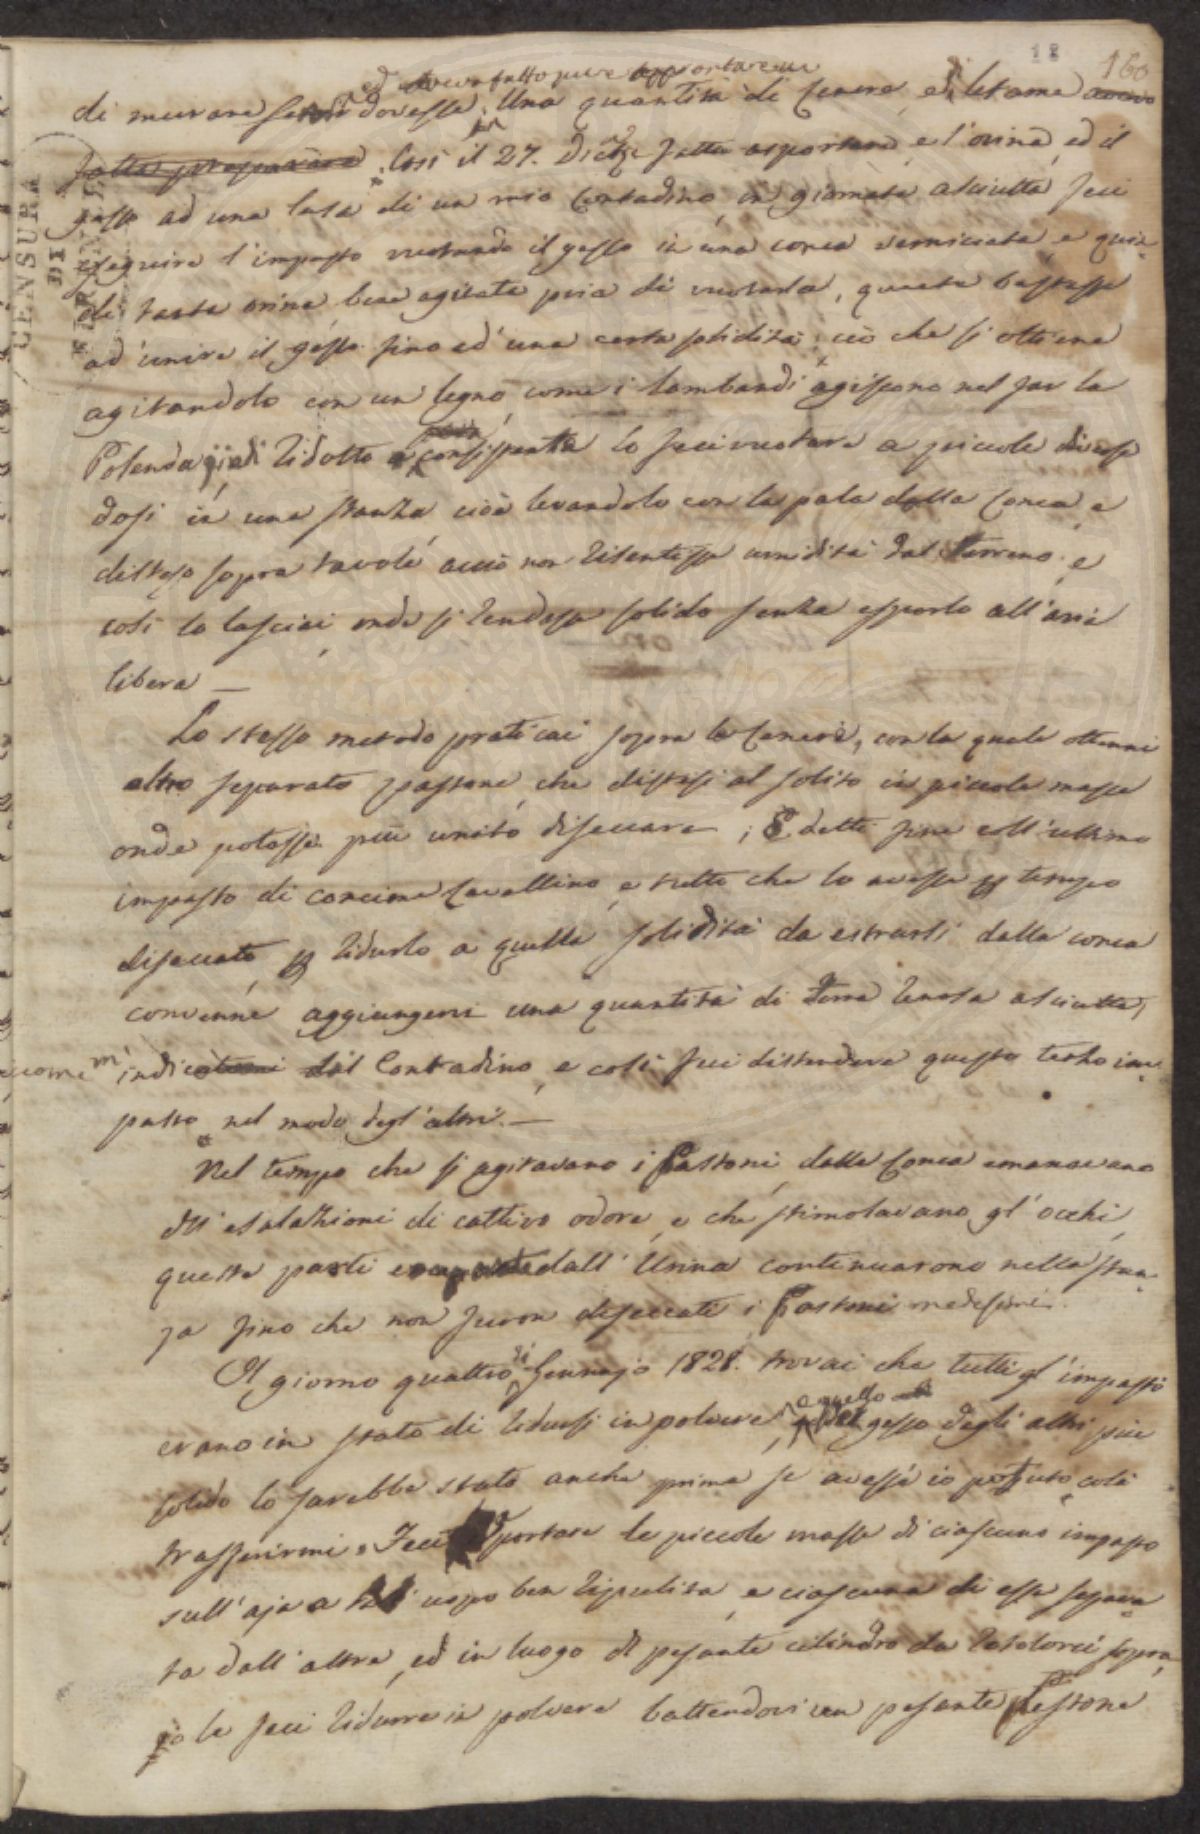 18 160
ed aveva fatto pure apportare un
di murare dovesse. Una quantità di Cenere, e di letame aveva
fatto preparare. Così il 27. Dicbre fatta asportare e l'orina, ed il
gesso ad una Casa di un mio Contadino, in giornata asciutta feci
eseguire l'impasto vuotando il gesso in una conca verniciata, e quin=
di tanta orina bene agitata pria di vuotarla, quanta bastasse
ad unire il gesso fino ad una certa solidità; ciò che si ottiene
agitandolo con un legno, come i Lombardi agiscono nel far la
Polenda, indi ridotto a consistenza lo feci vuotare a piccole diverse
dosi in una stanza cioè levandolo con la pala dalla Conca, e
disteso sopra tavole, acciò non risentisse umidità dal terreno, e
così lo lasciai, onde si rendesse solido senza esporlo all'aria
libera —
Lo stesso metodo praticai sopra la Cenere, con la quale ottenni
altro separato pastone, che distesi al solito in piccole masse
onde potesse più unito diseccare; E detti fine coll'ultimo
impasto di concime Cavallino, e tutto che lo avessi per tempo
diseccato, per ridurlo a quella solidità da estrarsi dalla conca
convenne aggiungervi una quantità di Terra renosa asciutta,
come m'indicò il Contadino, e così feci distendere questo terzo im=
pasto nel modo degl'altri. —
Nel tempo che si agitavano i Pastoni, dalla Conca emanavano
dell'esalazioni di cattivo odore, e che stimolavano gl'occhi,
queste parti dall'Urina continuarono nella stan=
za fino che non furon diseccati i Pastoni medesimi.
Il giorno quattro di Gennajo 1828. trovai che tutti gl'impasti
erano in stato di ridursi in polvere, e quello del gesso degli altri più
solido lo sarebbe stato anche prima se avessi io potuto colà
trasferirmi. Feci portare le piccole masse di ciascuno impasto
sull'aja a tal uopo ben ripulita, e ciascuna di esse separa=
ta dall'altra, ed in luogo di pesante cilindro da rotolarci sopra,
io le feci ridurre in polvere battendovi un pesante Pestone
CENSURA
DI